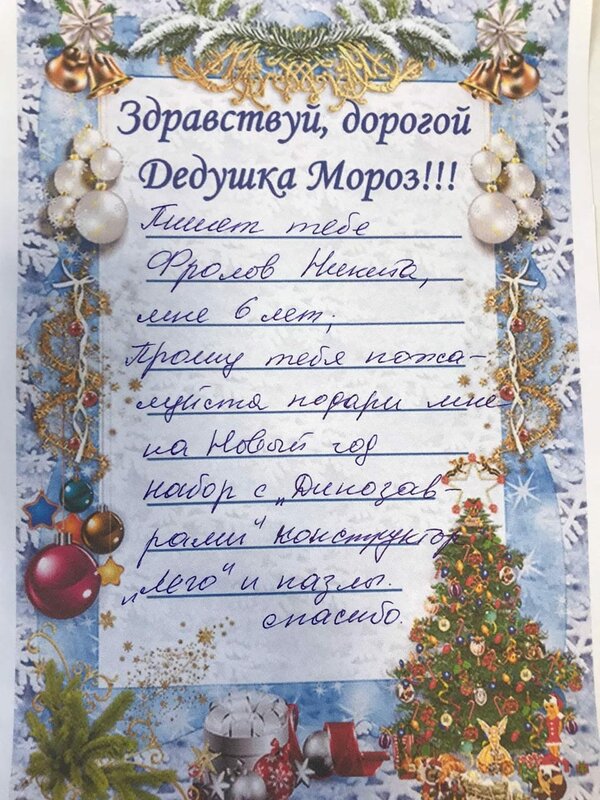 Здравствуй, дорогой
Дедушка Мороз!!!
Пишет тебе
Фролов Никита,
мне 6 лет,
Прошу тебя пожа-
луйста подари мне
на Новый год
набор с „Динозав-
рами" конструктор
„Лего" и пазлы.
спасибо.